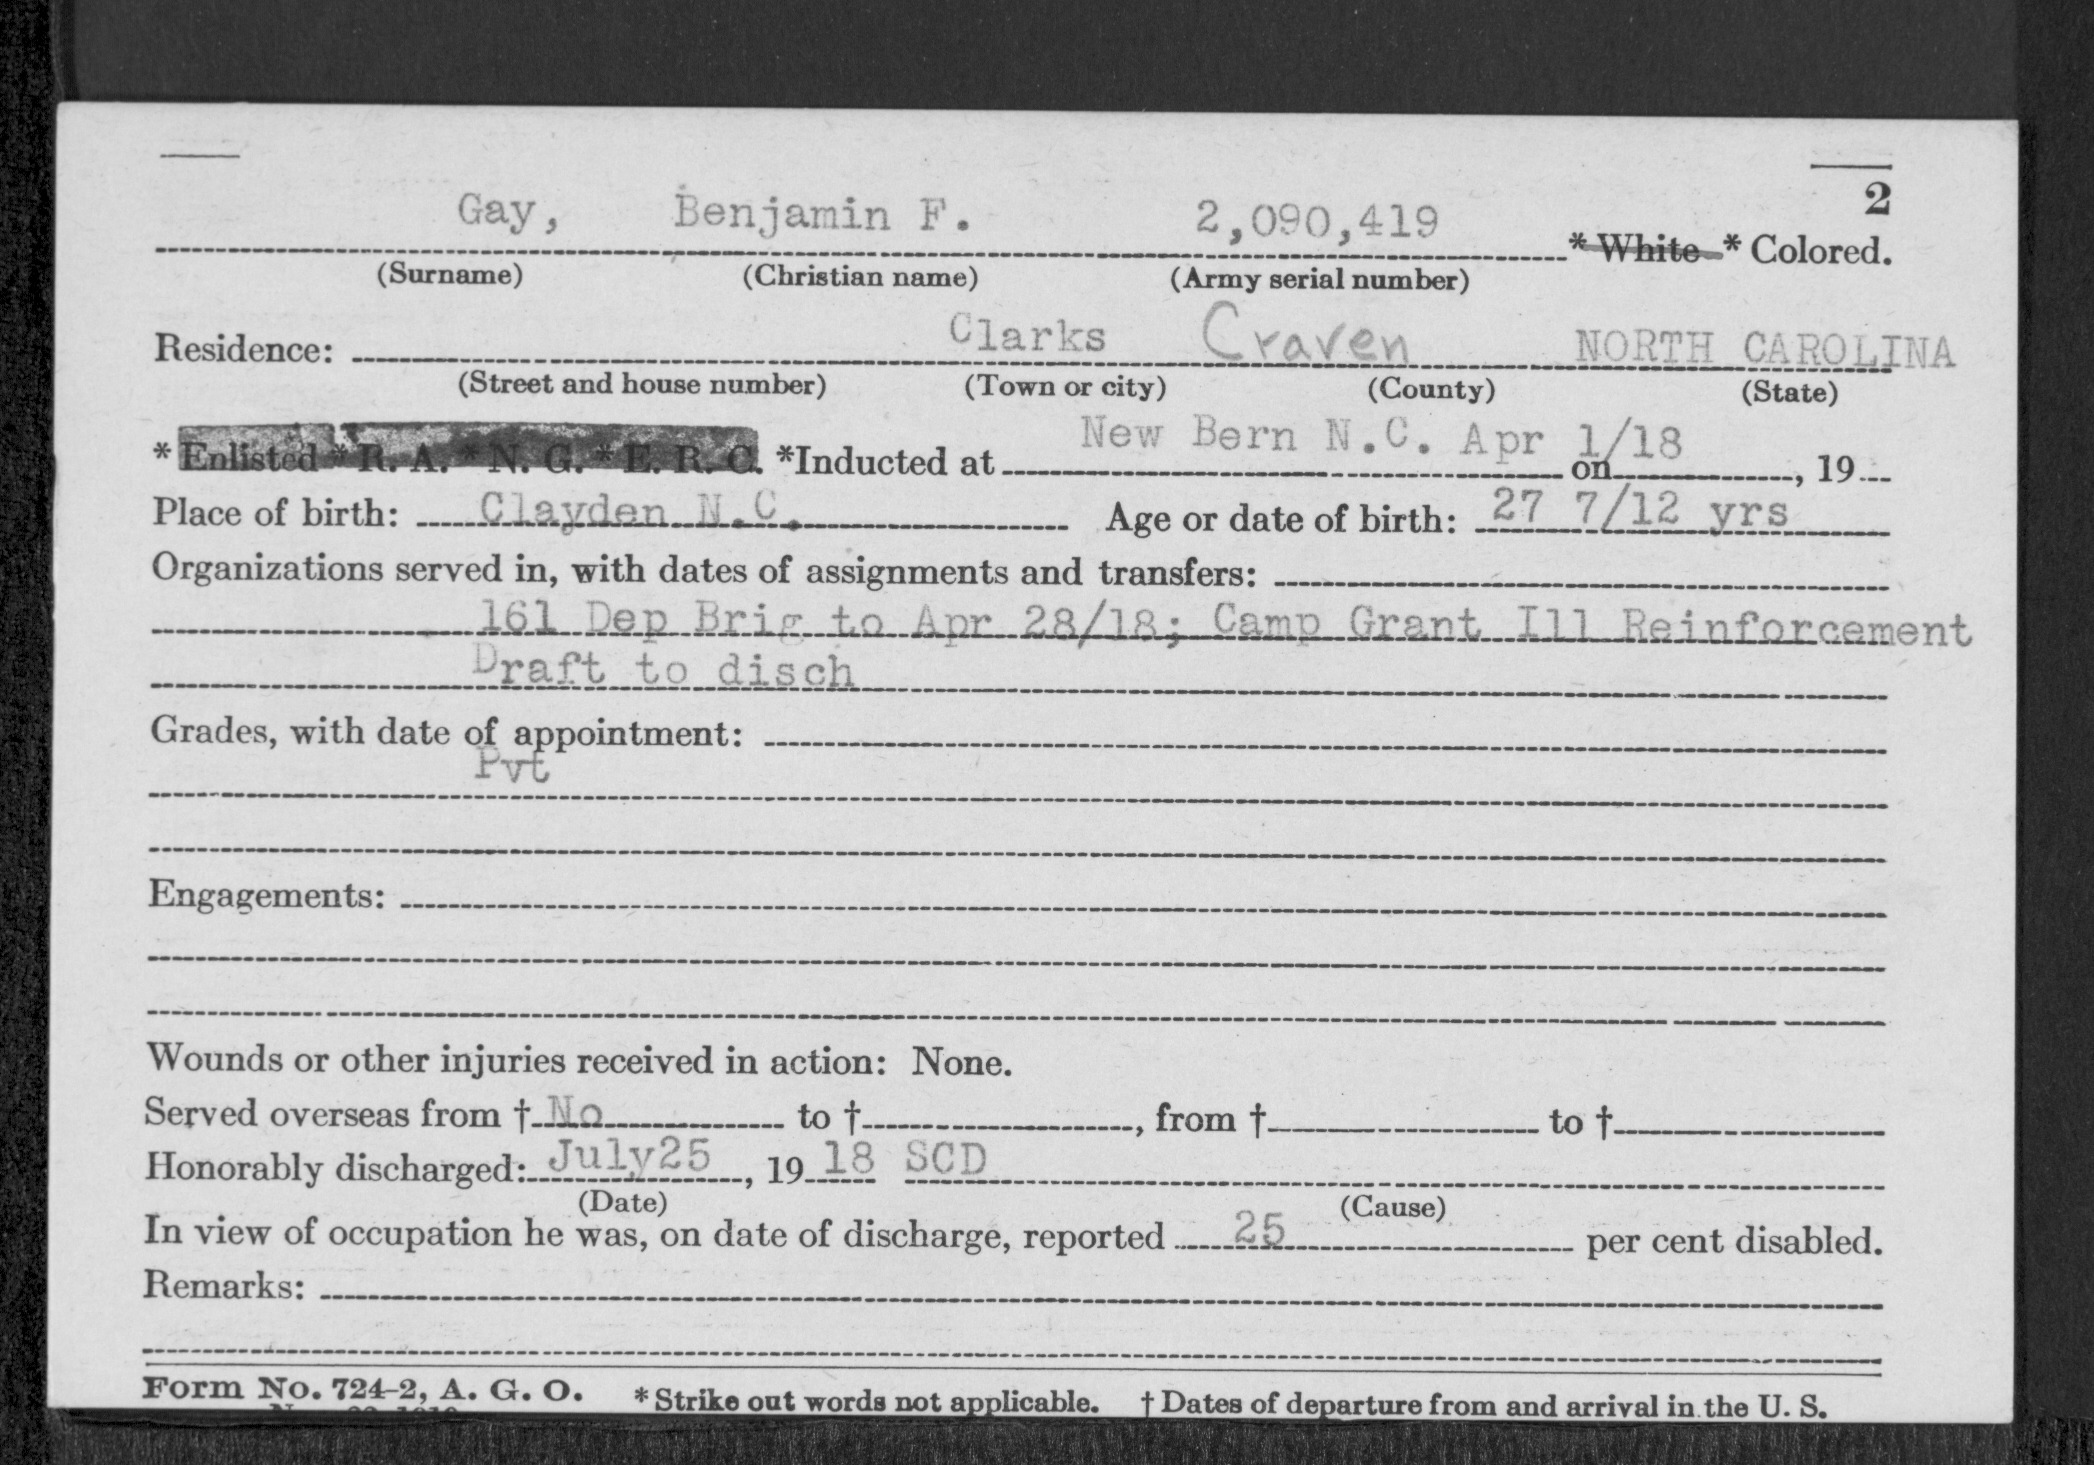 2
Gay, Benjamin F. 2,090,419 * White * Colored.
(Surname) (Christian name) (Army serial number)
Residence: Clarks Craven NORTH CAROLINA
(Street and house number) (Town or city) (County) (State)
* Enlisted * R. A. * N. G. * E. R. C. *Inducted at New Bern N.C. Apr 1/18 on , 19
Place of birth: Clayden N.C. Age or date of birth: 27 7/12 yrs
Organizations served in, with dates of assignments and transfers:
161 Dep Brig to Apr 28/18; Camp Grant Ill Reinforcement
Draft to disch
Grades, with date of appointment:
Pvt
Engagements:
Wounds or other injuries received in action: None.
Served overseas from † No to † , from † to †
Honorably discharged: July25 , 19 18 SCD
(Date) (Cause)
In view of occupation he was, on date of discharge, reported 25 per cent disabled.
Remarks:
Form No. 724-2, A. G. O. * Strike out words not applicable. † Dates of departure from and arrival in the U. S.